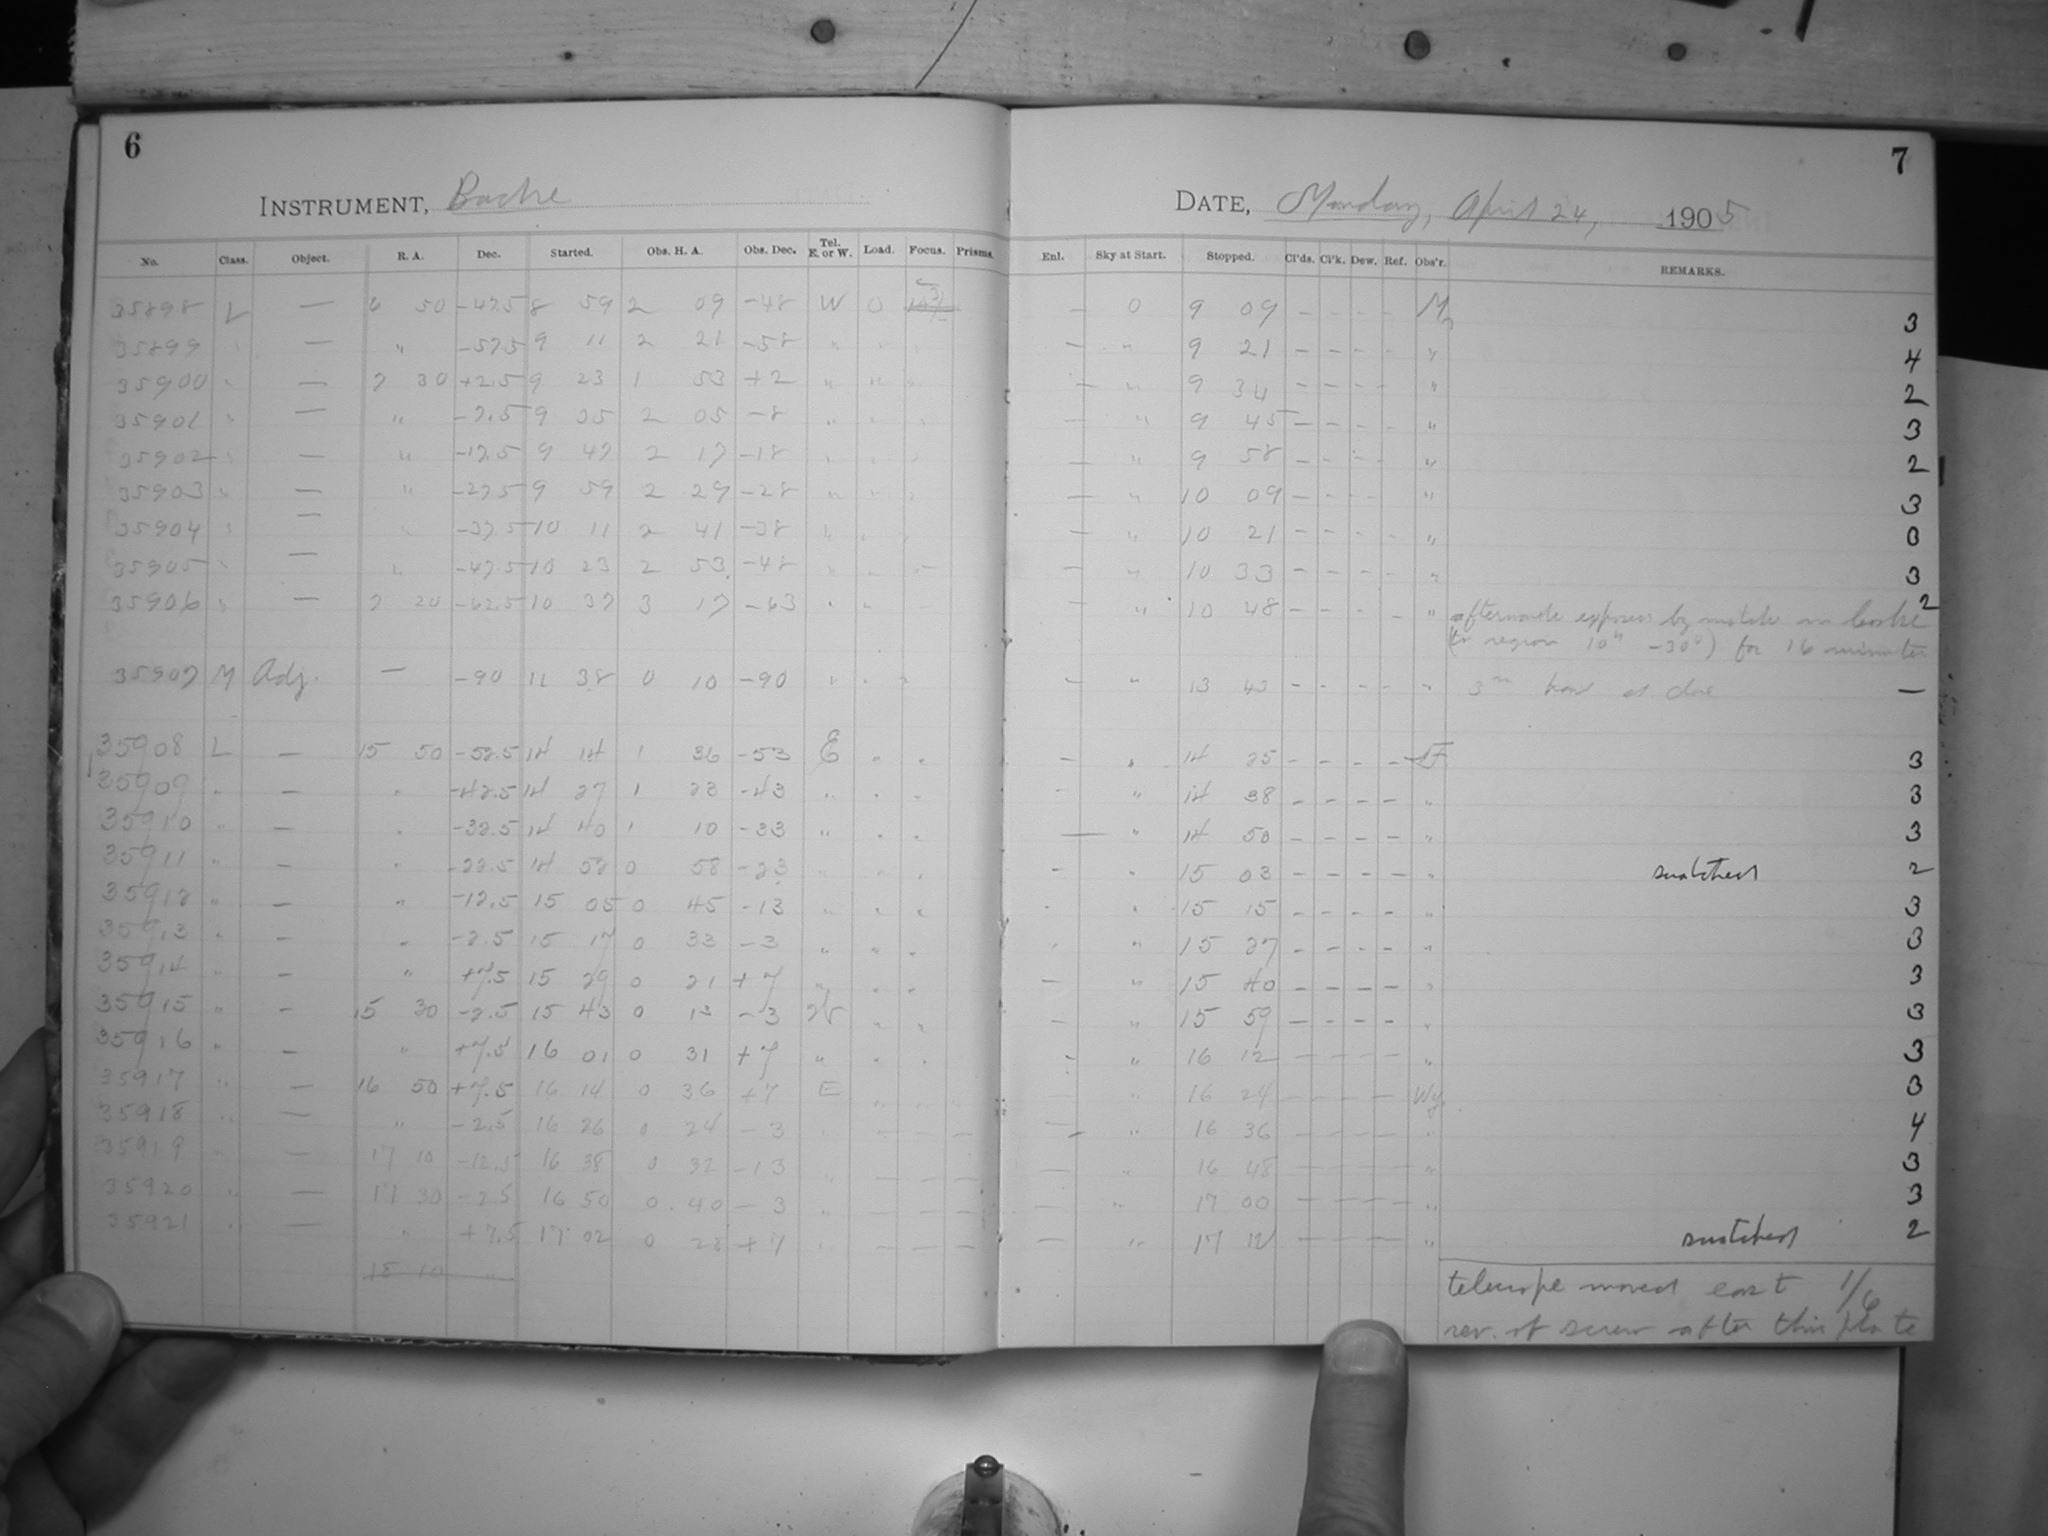 6
INSTRUMENT, Bache
No. Class. Object. R. A. Dec. Started. Obs. H. A. Obs. Dec. Tel. E. or W. Load. Focus. Prisms.
35898 L — 6 50 -47.5 8 59 2 09 -48 W 0
35899 " — " -57.5 9 11 2 21 -58 " " "
35900 " — 7 30 +2.5 9 23 1 53 +2 " " "
35901 " — " -7.5 9 35 2 05 -8 " " "
35902 " — " -17.5 9 47 2 17 -18 " " "
35903 " — " -27.5 9 59 2 29 -28 " " "
35904 " — " -37.5 10 11 2 41 -38 " " "
35905 " — " -47.5 10 23 2 53 -48 " " "
35906 " — 7 20 -62.5 10 37 3 17 -63 " " "
35907 M Adj. — -90 11 38 0 10 -90 " " "
35908 L — 15 50 -52.5 14 14 1 36 -53 E " "
35909 " — " -42.5 14 27 1 23 -43 " " "
35910 " — " -32.5 14 40 1 10 -33 " " "
35911 " — " -22.5 14 52 0 58 -23 " " "
35912 " — " -12.5 15 05 0 45 -13 " " "
35913 " — " -2.5 15 17 0 33 -3 " " "
35914 " — " +7.5 15 29 0 21 +7 " " "
35915 " — 15 30 -2.5 15 43 0 13 -3 W " "
35916 " — " +7.5 16 01 0 31 +7 " " "
35917 " — 16 50 +7.5 16 14 0 36 +7 E
35918 " — " -2.5 16 26 0 24 -3 " — — —
35919 " — 17 10 -12.5 16 38 0 32 -13 " — — —
35920 " — 17 30 -2.5 16 50 0 40 -3 " — — —
35921 " — " +7.5 17 02 0 28 +7 " — — —
18 10 "
7
DATE, Monday, April 24, 1905
Enl. Sky at Start. Stopped. Cl'ds. Cl'k. Dew. Ref. Obs'r. REMARKS.
— 0 9 09 — — — — 3
— " 9 21 — — — — " 4
— " 9 34 — — — — " 2
— " 9 45 — — — — " 3
— " 9 58 — — — — " 2
— " 10 09 — — — — " 3
— " 10 21 — — — — " 3
— " 10 33 — — — — " 3
— " 10 48 — — — — " afterwards exposed by mistake on Cooke 2
(to region 10h -30°) for 16 minutes
— " 13 43 — — — — " 3 —
— " 14 25 — — — — 3
— " 14 38 — — — — " 3
— " " 14 50 — — — — " 3
— " 15 03 — — — — " snatched 2
— " 15 15 — — — — " 3
— " 15 27 — — — — " 3
— " 15 40 — — — — " 3
— " 15 59 — — — — " 3
— " 16 12 — — — — " 3
— " 16 24 — — — — Wy. 3
— " 16 36 — — — — " 4
— " 16 48 — — — — " 3
— " 17 00 — — — — " 3
— " 17 12 — — — — " snatched 2
telescope moved east 1/6
rev. of screw after this plate